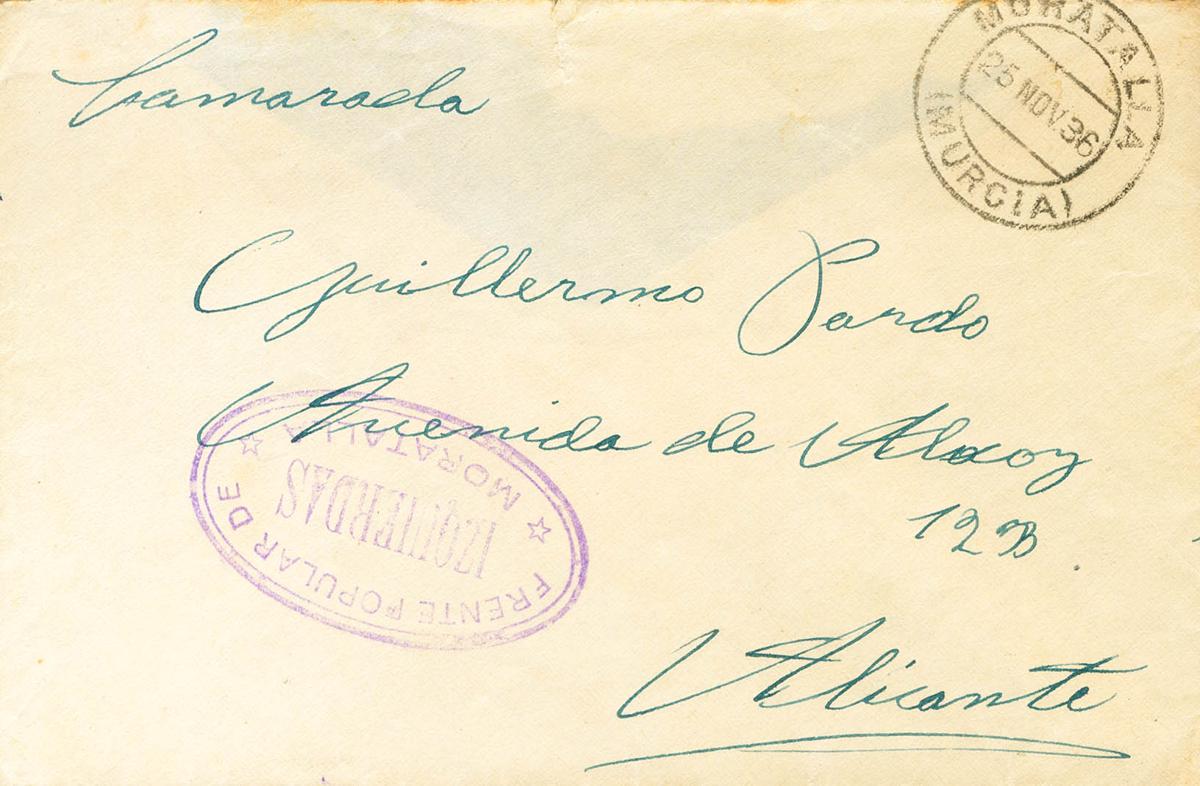 MORATALLA
25 NOV. 36
(MURCIA)
Camarada
Guillermo Pardo
Avenida de Alcoy
12B
Alicante
FRENTE POPULAR DE
IZQUIERDAS
MORATALLA